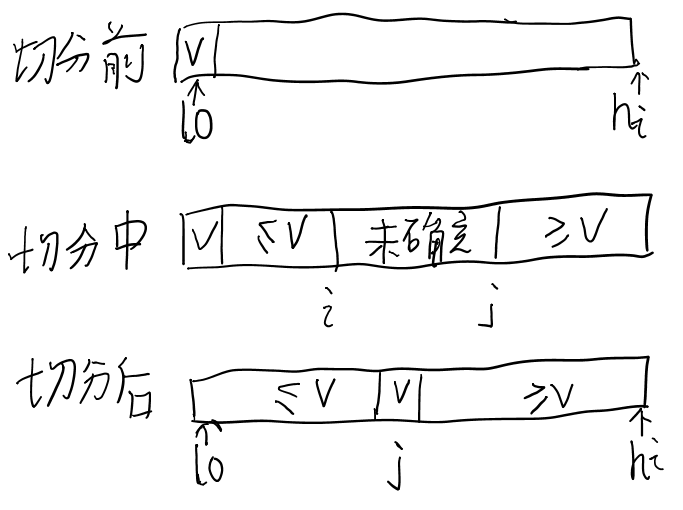 切分前 V
lo hi
切分中 V ≤V 未确定 ≥V
i j
切分后 ≤V V ≥V
lo j hi